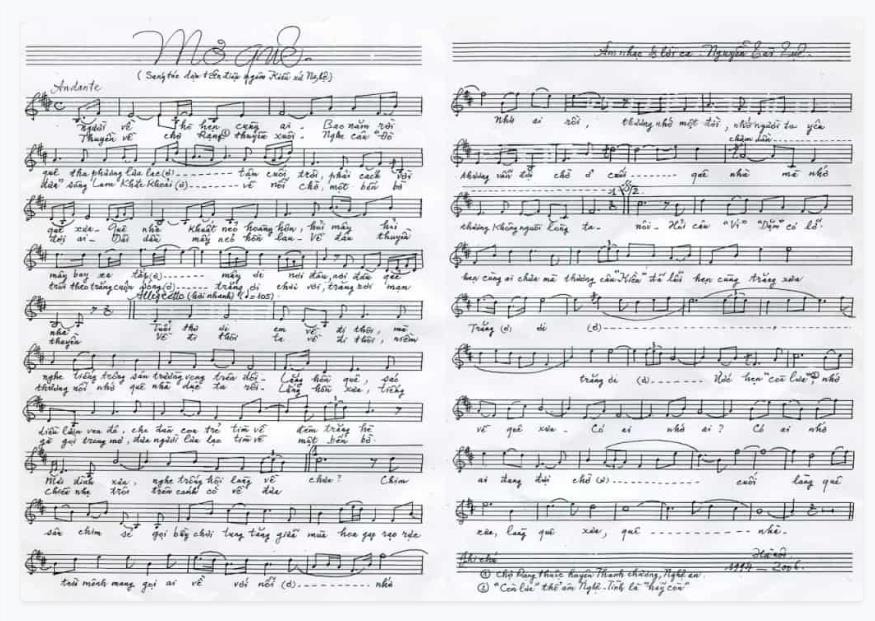 Mơ quê
(Sáng tác dựa trên điệu ngâm Kiều xứ Nghệ)
Andante
Người về thề hẹn cùng ai - Bao năm rồi
Thuyền về chợ Rạng ① thuyền xuôi - Nghe câu "Đò
quê tha phương lưu lạc (ơ) tận cuối trời, phải cách vời
đưa" sông Lam khắc khoải (ơ) về nơi chờ, một bến bờ
quê xưa - Quê nhà khuất nẻo hoàng hôn, hỏi mây hỏi
đợi ai - Dãi dầu mấy nẻo hôn - Về đâu thuyền
mây bay xa tắp (ơ) mây đi nơi đâu, nơi đâu quê
trôi theo trăng cuộn sóng (ơ) trăng đi chơi vơi, trăng rơi mạn
Allegretto (Hơi nhanh) (♩ = 105)
nhà - Tuổi thơ ơi em về đi thôi, mà
thuyền Về đi thôi ta về đi thôi, niềm
nghe tiếng trống sân trường vang trên đồi - Lắng hồn quê, sáo
thương nỗi nhớ quê nhà dục ta rồi - Lắng hồn xưa, tiếng
diều luôn ven đê, che đàn con trẻ tìm về đêm trăng hè
gà gọi trong mơ, đưa người lưu lạc tìm về một bến bờ
Mái đình xưa, nghe trống hội làng về chưa? Chim
Chiều nhẹ trôi trên cánh cò về đưa
sâu chim sẻ gọi bầy chơi tung tăng giữa mùa hoa gạo rạo rực
trời mênh mang gọi ai về với nỗi (ơ) nhớ
Âm nhạc & lời ca: Nguyễn
Nhớ ai rồi, thương nhớ một đời, nhớ người ta yêu
chậm dần
thương vẫn đợi chờ ở cuối quê nhà mà nhớ
1. 2.
thương không người lòng ta - nôi - Hát câu "Ví" "Dặm" có lỡ
hẹn cùng ai chưa mà thương câu "Kiều" để lỗi hẹn cùng trăng xưa
Trăng (ơ) ơi (ơ)
trăng ơi (ơ) Ước hẹn "còn lưa" ② nhớ
về quê xưa - Có ai nhớ ai? Có ai nhớ
ai đang đợi chờ (ơ) cuối làng quê
xưa, làng quê xưa, quê nhà -
Ghi chú
Hà Nội
1994 - 2006.
① Chợ Rạng thuộc huyện Thanh Chương, Nghệ An.
② "Còn lưa" thổ âm Nghệ - Tĩnh là "hãy còn"